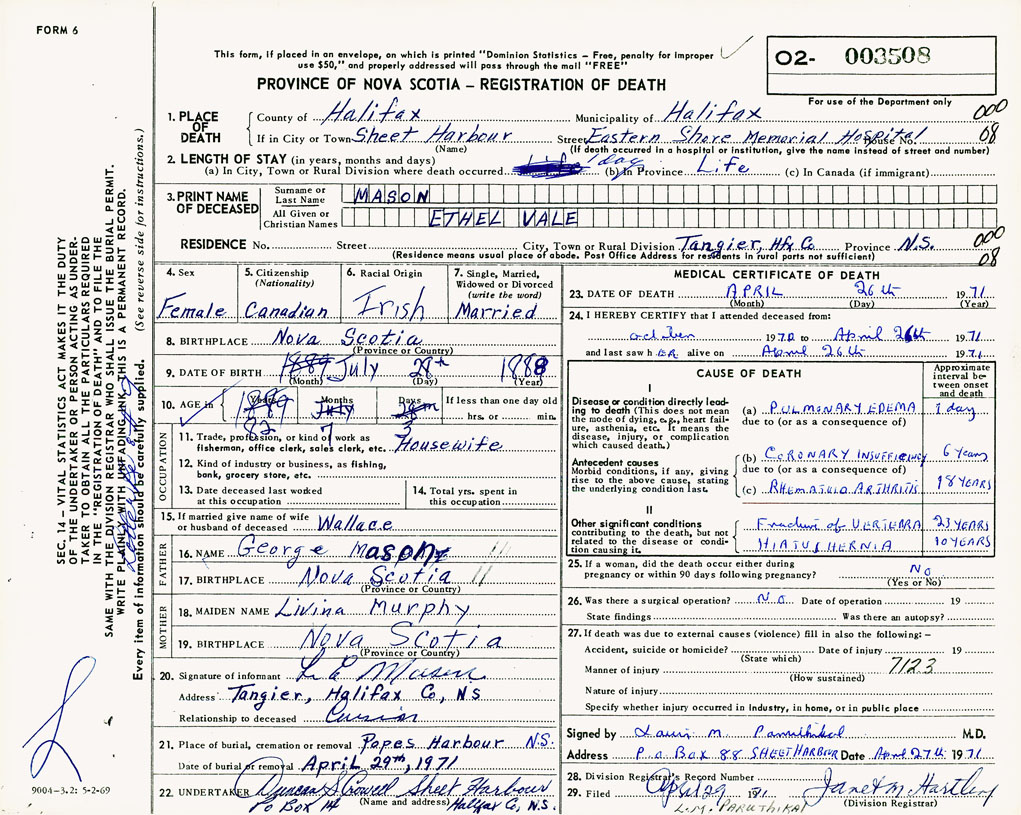 FORM 6
This form, if placed in an envelope, on which is printed "Dominion Statistics – Free, penalty for improper
use $50," and properly addressed will pass through the mail "FREE"
PROVINCE OF NOVA SCOTIA – REGISTRATION OF DEATH
02- 003508
For use of the Department only
1. PLACE OF DEATH
County of Halifax Municipality of Halifax 000
If in City or Town Sheet Harbour Street Eastern Shore Memorial Hospital House No. 08
(Name) (If death occurred in a hospital or institution, give the name instead of street and number)
2. LENGTH OF STAY (in years, months and days)
(a) In City, Town or Rural Division where death occurred 1 day (b) In Province Life (c) In Canada (if immigrant)
3. PRINT NAME OF DECEASED
Surname or Last Name MASON
All Given or Christian Names ETHEL VALE
RESIDENCE No. Street City, Town or Rural Division Tangier, Hfx Co Province N.S. 000
(Residence means usual place of abode. Post Office Address for residents in rural parts not sufficient) 08
4. Sex Female
5. Citizenship (Nationality) Canadian
6. Racial Origin Irish
7. Single, Married, Widowed or Divorced (write the word) Married
8. BIRTHPLACE Nova Scotia
(Province or Country)
9. DATE OF BIRTH 1889 July 28th 1888
(Month) (Day) (Year)
10. AGE in Years Months Days If less than one day old
1889 July 28th hrs. or min.
82 7 3
OCCUPATION
11. Trade, profession, or kind of work as
fisherman, office clerk, sales clerk, etc. Housewife
12. Kind of industry or business, as fishing,
bank, grocery store, etc.
13. Date deceased last worked
at this occupation
14. Total yrs. spent in
this occupation
15. If married give name of wife
or husband of deceased Wallace
FATHER
16. NAME George Mason
17. BIRTHPLACE Nova Scotia
(Province or Country)
MOTHER
18. MAIDEN NAME Livina Murphy
19. BIRTHPLACE Nova Scotia
(Province or Country)
20. Signature of informant L E Mason
Address Tangier, Halifax Co, NS
Relationship to deceased
21. Place of burial, cremation or removal Popes Harbour N.S.
Date of burial or removal April 29th, 1971
22. UNDERTAKER Duncan S Crowell Sheet Harbour
PO Box 14 (Name and address) Halifax Co, N.S.
MEDICAL CERTIFICATE OF DEATH
23. DATE OF DEATH APRIL 26th 1971
(Month) (Day) (Year)
24. I HEREBY CERTIFY that I attended deceased from:
october 1970 to April 26th 1971
and last saw hER alive on April 26th 1971
CAUSE OF DEATH
Approximate interval between onset and death
I
Disease or condition directly leading to death (This does not mean the mode of dying, e.g., heart failure, asthenia, etc. It means the disease, injury, or complication which caused death.)
(a) PULMONARY EDEMA 1 day
due to (or as a consequence of)
Antecedent causes
Morbid conditions, if any, giving rise to the above cause, stating the underlying condition last.
(b) CORONARY INSUFFICIENCY 6 Years
due to (or as a consequence of)
(c) RHEMATUID ARTHRITIS 18 YEARS
II
Other significant conditions
contributing to the death, but not related to the disease or condition causing it.
Fracture of VERTEBRA 23 YEARS
HIATUS HERNIA 10 YEARS
25. If a woman, did the death occur either during
pregnancy or within 90 days following pregnancy? No
(Yes or No)
26. Was there a surgical operation? No Date of operation 19
State findings Was there an autopsy?
27. If death was due to external causes (violence) fill in also the following: –
Accident, suicide or homicide? Date of injury 19
(State which)
Manner of injury 7123
(How sustained)
Nature of injury
Specify whether injury occurred in Industry, in home, or in public place
Signed by M.D.
Address P.O. Box 88 SHEET HARBOUR Date April 27th 1971
28. Division Registrar's Record Number
29. Filed April 29 1971 Janet M. Hartling
L.M. PARUTHIKAL (Division Registrar)
SEC. 14 – VITAL STATISTICS ACT MAKES IT THE DUTY
OF THE UNDERTAKER OR PERSON ACTING AS UNDERTAKER
TO OBTAIN ALL THE PARTICULARS REQUIRED
IN THE "REGISTRATION OF DEATH" AND TO FILE THE
SAME WITH THE DIVISION REGISTRAR WHO SHALL ISSUE THE BURIAL PERMIT.
WRITE PLAINLY WITH UNFADING INK. THIS IS A PERMANENT RECORD.
Every item of information should be carefully supplied. (See reverse side for instructions.)
9004-3.2: 5-2-69